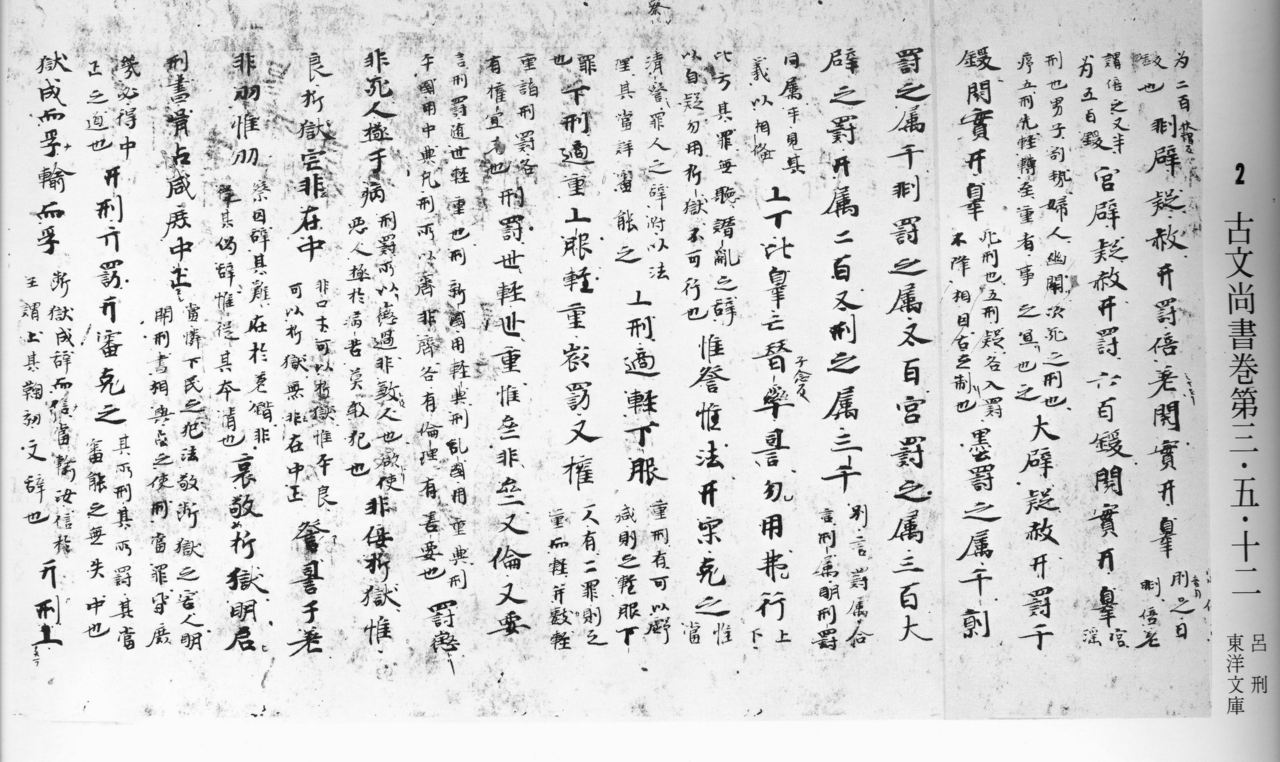 2 古文尚書巻第三・五・十二
呂刑
東洋文庫
为二百鍰也 剕辟疑赦亓罰倍差閱實亓辠 刖足曰剕倍差
謂倍之又半为五百鍰 宮辟疑赦亓罰六百鍰閱實亓辠 宮淫
刑也男子割勢婦人幽閉次死之刑也序五刑先輕轉至重者事之宜也 大辟疑赦亓罰千
鍰閱實亓辠 死刑也五刑疑各入罰不降相因古之制也 墨罰之属千劓
罰之属千剕罰之属五百宮罰之属三百大
辟之罰亓属二百五刑之属三千 別言罰属合言刑属明刑罰
同属互見其義以相俻 上下比辠亡朁勿用弗行 上下
比方其罪無聽僭亂之辞以自疑勿用折獄不可行也 惟詧惟法亓宷克之 惟當
清詧罪人之辞附以法理其當詳審能之 上刑適輕下服 重刑有可以虧減則之輕服下
罪也 下刑適重上服輕重㪅罰又權 一人有二罪則之重而輕并數輕
重諸刑罰各有權宜也 刑罰世輕世重惟亝非亝又倫又要
言刑罰隨世輕重也刑新國用輕典刑乱國用重典刑平國用中典凡刑所以齊非齊各有倫理有要也 罰懲
非死人極于病 刑罰所以懲過非敎人也欲使惡人極於病苦莫敢犯也 非佞折獄惟
良折獄宐非在中 非口才可以折獄惟平良可以折獄無非在中正 詧于差
非刕惟刕 察囚辞其難在於差僭非從其偽辞惟從其本情也 哀敬折獄明启
刑書胥占咸庻中正 當憐下民之犯法敬断獄之害人明開刑書相與占之使刑當罪皆庻
幾必得中正之道也 亓刑亓罰亓審克之 其所刑其所罰其當審能之無失中也
獄成而孚輸而孚 断獄成辞而信當輸汝信於王謂上其鞫劾文辞也 亓刑上